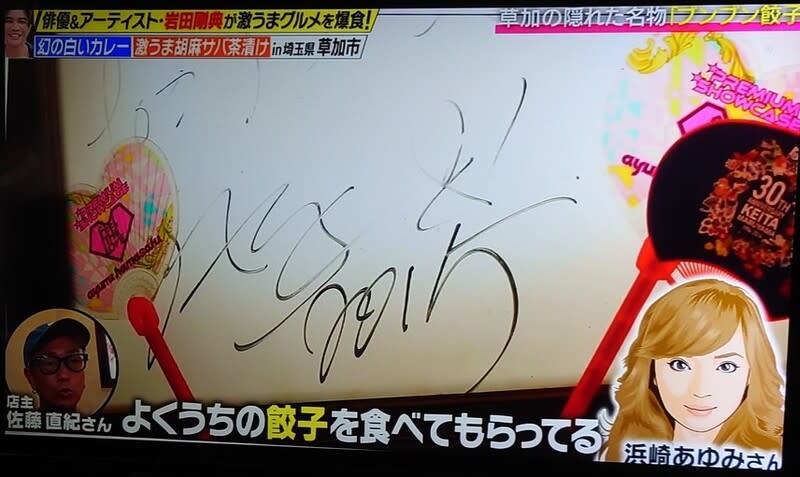 俳優&アーティスト・岩田剛典が激うまグルメを爆食!
幻の白いカレー 激うま胡麻サバ茶漬け in埼玉県 草加市
草加の隠れた名物「ブンブン餃子
PREMIUM SHOWCASE
ayumi hamasaki
PREMIUM
SHOWCASE
ayu
30TH
KEITA
店主
佐藤 直紀さん
よくうちの餃子を食べてもらってる
浜崎あゆみさん